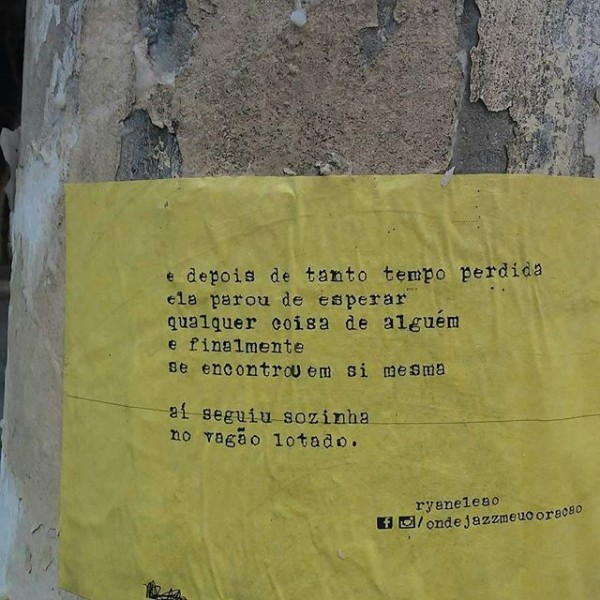 e depois de tanto tempo perdida
ela parou de esperar
qualquer coisa de alguém
e finalmente
se encontrou em si mesma
aí seguiu sozinha
no vagão lotado.
ryaneleao
/ondejazzmeucoracao